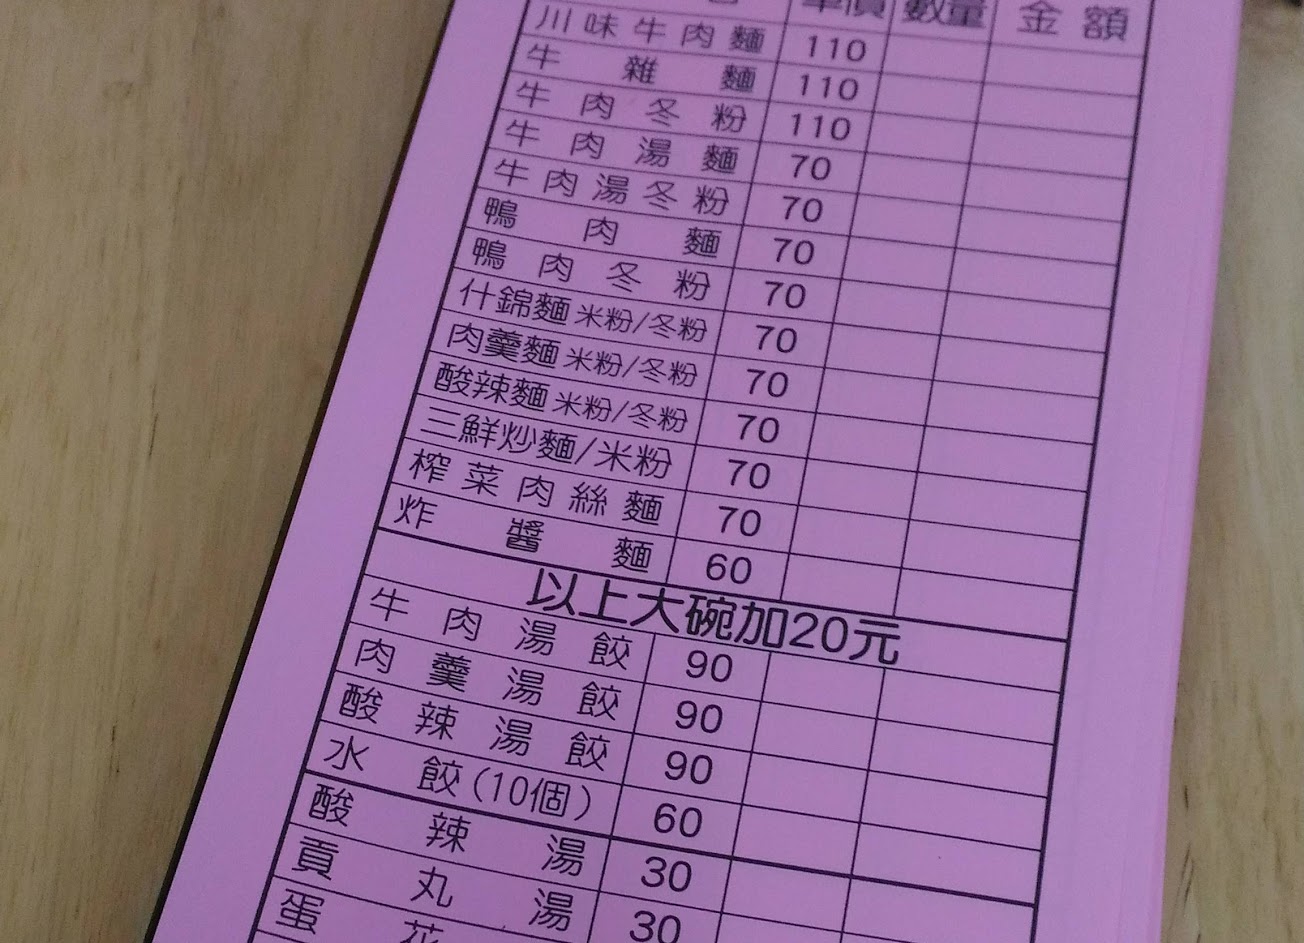 單價 數量 金額
川味牛肉麵 110
牛雜麵 110
牛肉冬粉 110
牛肉湯麵 70
牛肉湯冬粉 70
鴨肉麵 70
鴨肉冬粉 70
什錦麵 米粉/冬粉 70
肉羹麵 米粉/冬粉 70
酸辣麵 米粉/冬粉 70
三鮮炒麵/米粉 70
榨菜肉絲麵 70
炸醬麵 60
以上大碗加20元
牛肉湯餃 90
肉羹湯餃 90
酸辣湯餃 90
水餃(10個) 60
酸辣湯 30
貢丸湯 30
蛋花